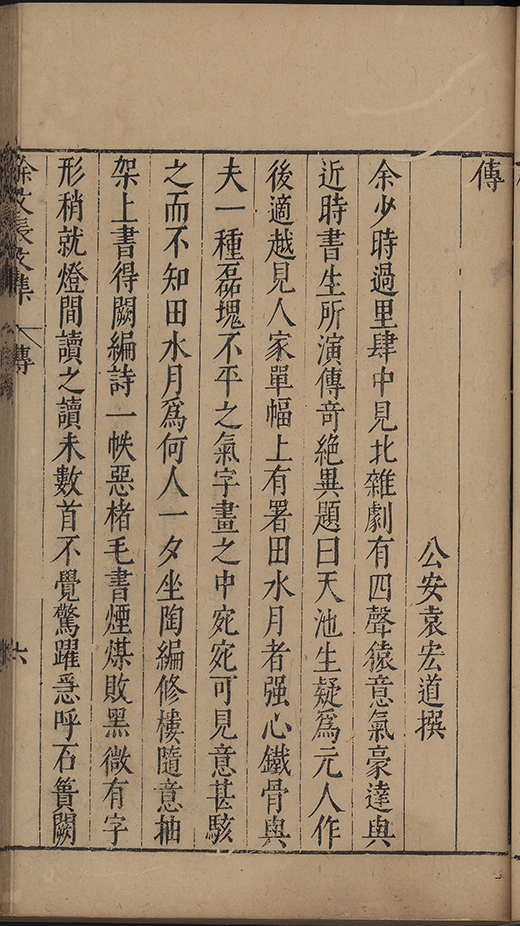 傳
公安袁宏道撰
余少時過里肆中見北雜劇有四聲猿意氣豪達與
近時書生所演傳奇絕異題曰天池生疑爲元人作
後適越見人家單幅上有署田水月者强心鐵骨與
夫一種磊塊不平之氣字畫之中宛宛可見意甚駭
之而不知田水月爲何人一夕坐陶編修樓隨意抽
架上書得闕編詩一帙惡楮毛書煙煤敗黑微有字
形稍就燈間讀之讀未數首不覺驚躍忽呼石簣闕
徐文長文集 傳 六